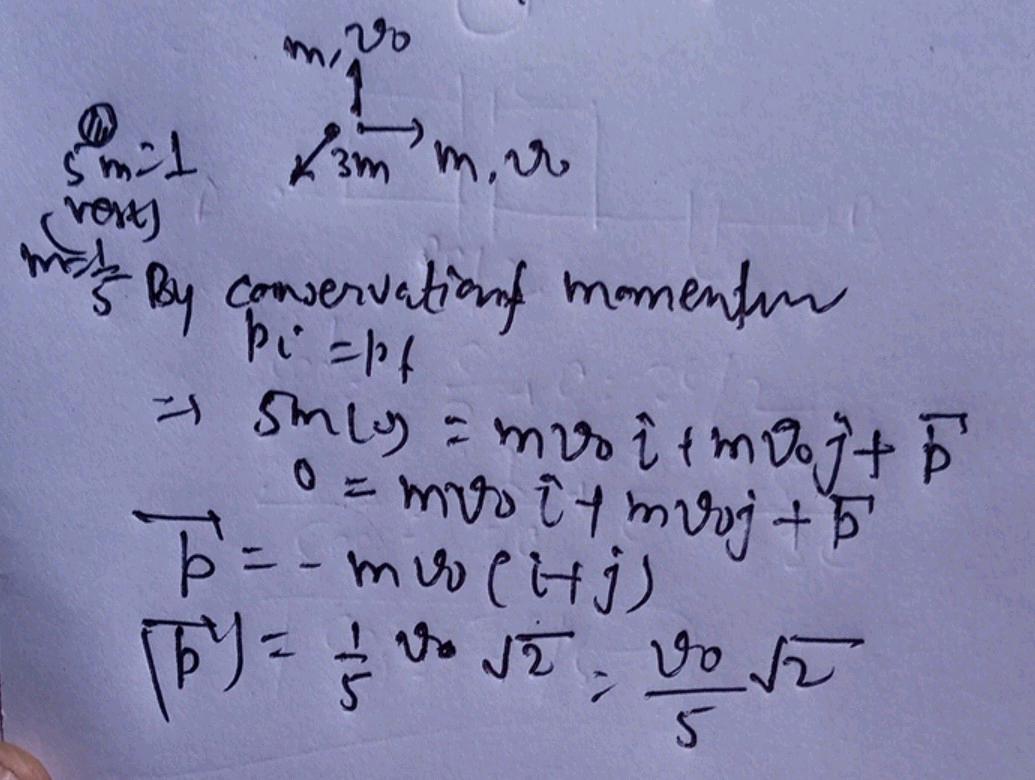 m, v₀
5m=1
3m
m, v₀
(rest)
m=1/5
By conservation of momentum
pi = pf
⇒ 5m(0) = mv₀ î + mv₀ ĵ + p⃗
0 = mv₀ î + mv₀j + p⃗
p⃗ = - mv₀ (i+j)
|p⃗| = 1/5 v₀ √2 = v₀/5 √2